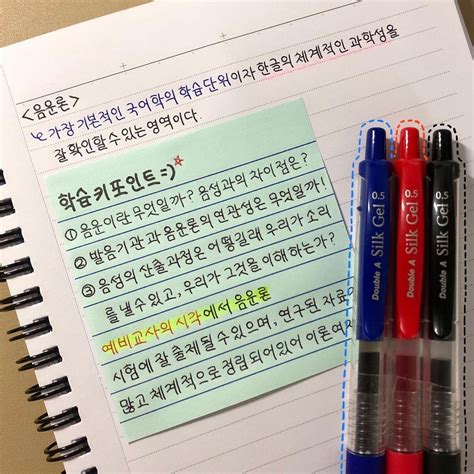 <음운론>
가장 기본적인 국어학의 학습단위이자 한글의 체계적인 과학성을
잘 확인할 수 있는 영역이다.
학습 키포인트=)
① 음운이란 무엇일까? 음성과의 차이점은?
② 발음기관과 음운론의 연관성은 무엇일까!
③ 음성의 산출과정은 어떻길래 우리가 소리
를 낼 수 있고, 우리가 그것을 이해하는가?
예비교사의 시각에서 음운론
시험에 잘 출제될 수 있으며, 연구된 자료
많고 체계적으로 정립되어있어 이론
0.5
Double A Silk Gel
0.5
Double A Silk Gel
0.5
Double A Silk Gel